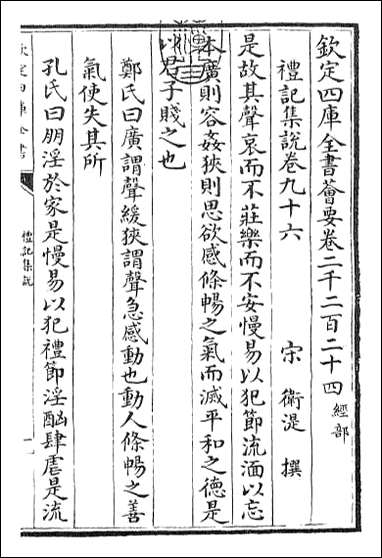 欽定四庫全書薈要卷二千二百二十四 經部
禮記集說卷九十六
宋 衛湜 撰
是故其聲哀而不莊樂而不安慢易以犯節流湎以忘
本廣則容姦狹則思欲感條暢之氣而滅平和之德是
以君子賤之也
鄭氏曰廣謂聲緩狹謂聲急感動也動人條暢之善
氣使失其所
孔氏曰朋淫於家是慢易以犯禮節淫酗肆虐是流
欽定四庫全書
禮記集說
一